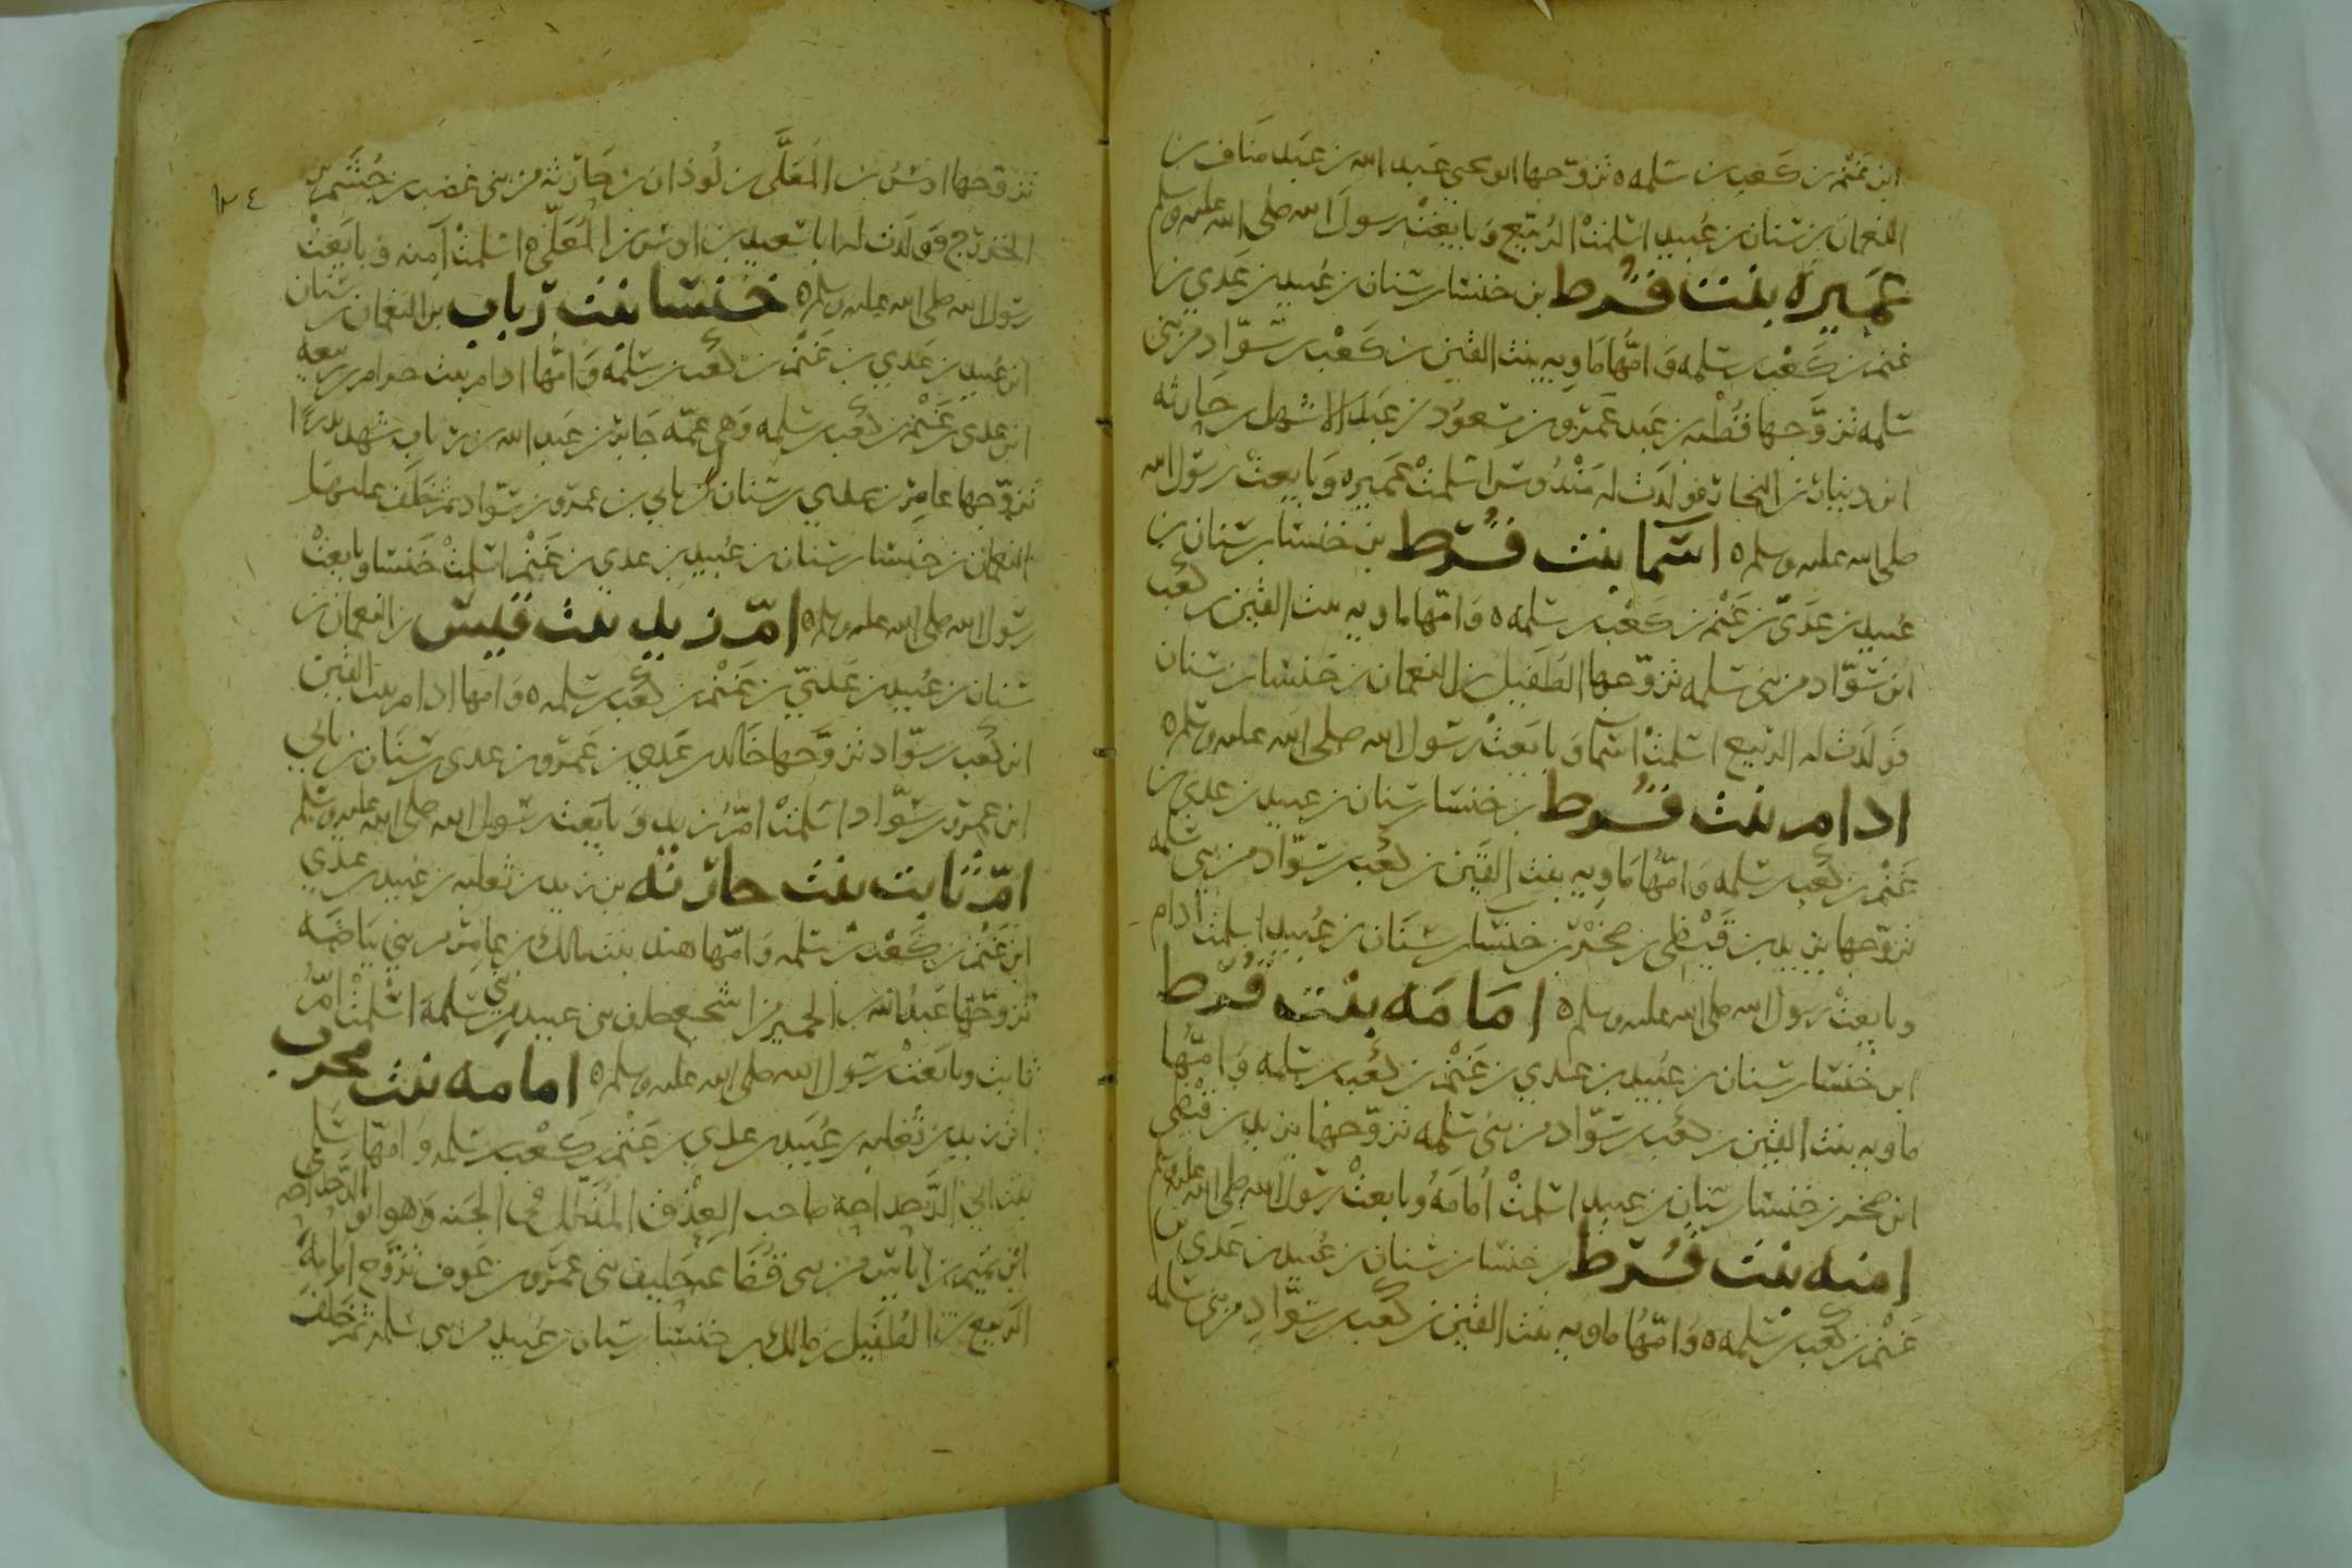 ابن غنم بن كعب بن سلمه ٥ تزوجها ابو يحيى عبد الله بن عبد مناف بن
النعمان بن سنان بن عبيد اسلمت الربيع وبايعت رسول الله صلى الله عليه وسلم
عميرة بنت قرط بن خنسا بن سنان بن عبيد بن عدي بن
غنم بن كعب بن سلمه وامها ماويه بنت القين بن كعب بن سواد من بني
سلمه تزوجها قطبه بن عبد عمرو بن مسعود بن عبد الاشهل بن حارثه
ابن دينار بن النجار فولدت له مندوس اسلمت عميره وبايعت رسول الله
صلى الله عليه وسلم ٥ اسما بنت قرط بن خنسا بن سنان بن
عبيد بن عدي بن غنم بن كعب بن سلمه ٥ وامها ماويه بنت القين بن كعب
ابن سواد من بني سلمه تزوجها الطفيل بن النعمان بن خنسا بن سنان
فولدت له الربيع اسلمت اسما وبايعت رسول الله صلى الله عليه وسلم ٥
ادام بنت قرط بن خنسا بن سنان بن عبيد بن عدي بن
غنم بن كعب بن سلمه وامها ماويه بنت القين بن كعب بن سواد من بني سلمه
تزوجها يزيد بن قيظي بن صخر بن خنسا بن سنان بن عبيد اسلمت ادام
وبايعت رسول الله صلى الله عليه وسلم ٥ امامه بنت قرط
ابن خنسا بن سنان بن عبيد بن عدي بن غنم بن كعب بن سلمه وامها
ماويه بنت القين بن كعب بن سواد من بني سلمه تزوجها يزيد بن قيظي
ابن صخر بن خنسا بن سنان بن عبيد اسلمت امامه وبايعت رسول الله صلى الله عليه وسلم
امنه بنت قرط بن خنسا بن سنان بن عبيد بن عدي بن
غنم بن كعب بن سلمه ٥ وامها ماويه بنت القين بن كعب بن سواد من بني سلمه
١٢٤
تزوجها اوس بن المعلى بن لوذان بن حارثه من بني غضب بن جشم بن
الخزرج فولدت له ابا سعيد بن اوس بن المعلى ٥ اسلمت آمنه وبايعت
رسول الله صلى الله عليه وسلم ٥ خنسا بنت رباب بن النعمان بن سنان
ابن عبيد بن عدي بن غنم بن كعب بن سلمه وامها ادام بنت حرام بن ربيعه
ابن عدي بن غنم بن كعب بن سلمه وهي عمه جابر بن عبد الله بن رباب شهد بدرا
تزوجها عامر بن عدي بن سنان بن نابي بن عمرو بن سواد ثم خلف عليها
النعمان بن خنسا بن سنان بن عبيد بن عدي بن غنم اسلمت خنسا وبايعت
رسول الله صلى الله عليه وسلم ٥ ام زيد بنت قيس بن النعمان بن
سنان بن عبيد بن عدي بن غنم بن كعب بن سلمه ٥ وامها ادام بنت القين
ابن كعب بن سواد تزوجها خالد بن عدي بن عمرو بن عدي بن سنان بن نابي
ابن عمرو بن سواد اسلمت ام زيد وبايعت رسول الله صلى الله عليه وسلم
ام ثابت بنت حارثه بن زيد بن ثعلبه بن عبيد بن عدي
ابن غنم بن كعب بن سلمه وامها هند بنت مالك بن عامر من بني بياضه
تزوجها عبد الله بن الحمير من اشجع حليف بني عبيد من بني سلمه اسلمت ام
ثابت وبايعت رسول الله صلى الله عليه وسلم ٥ امامه بنت محرب
ابن زيد بن ثعلبه بن عبيد بن عدي بن غنم بن كعب بن سلمه وامها سلمى
بنت ابي الدحداحه صاحب العذق المذلل في الجنه وهو ابو الدحداحه
ابن نعيم بن اياس من بني قضاعه حليف بني عمرو بن عوف تزوج امامه
الربيع بن الطفيل بن مالك بن خنسا بن سنان بن عبيد من بني سلمه ثم خلف